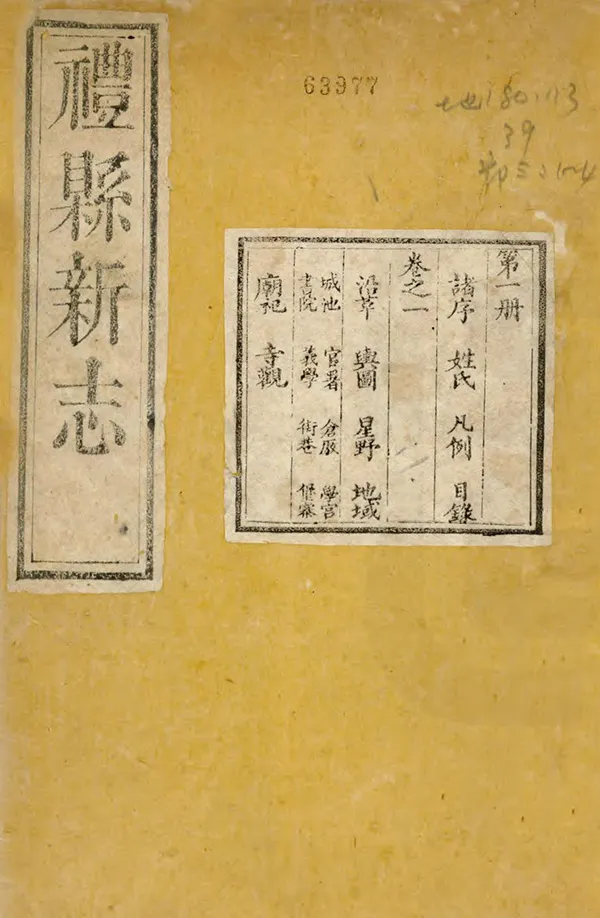 禮縣新志
63977
地180.113
39
第一册
諸序 姓氏 凡例 目錄
卷之一
沿革 輿圖 星野 地域
城池 官署 倉廒 學宮
書院 義學 街巷 堡寨
廟祀 寺觀